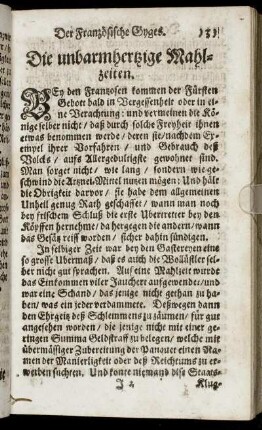 Der Französische Gyges. 131
Die unbarmhertzige Mahl-
zeiten.
BEy den Frantzosen kommen der Fürsten
Gebott bald in Vergessenheit oder in ei-
ne Verachtung: und vermeinen die Kö-
nige selber nicht / daß durch solche Freyheit ihnen
etwas benommen werde / deren sie / nach den Ex-
empel ihrer Vorfahren / und Gebrauch deß
Volcks / aufs Allergedultigste gewohnet sind.
Man sorget nicht / wie lang / sondern wie ge-
schwind die Artznei-Mittel nutzen mögen: Und hält
die Obrigkeit darvor / sie habe dem allgemeinen
Unheil genug Rath geschaffet / wann man noch
bey frischem Schluß die erste Ubertretter bey den
Köpffen hernehme / da hergegen die andern / wann
das Gesätz reiff worden / sicher dahin sündigen.
In selbiger Zeit war bey den Gastereyen eine
so grosse Ubermaß / daß es auch die Wollüstler sel-
ber nicht gut sprachen. Auf eine Mahlzeit wurde
das Einkommen viler Jaucherte aufgewendet / und
war eine Schand / das jenige nicht gethan zu ha-
ben / was ein jeder verdammete. Deßwegen dann
den Ehrgeitz deß Schlemmens zu zäumen / für gut
angesehen worden / die jenige nicht mit einer ge-
ringen Summa Geldstraff zu belegen / welche mit
übermässiger Zubereitung der Panquet einen Na-
men der Manierligkeit oder deß Reichtums zu er-
werben suchten. Und konte niemand dise Staats-
J 2 Klug-